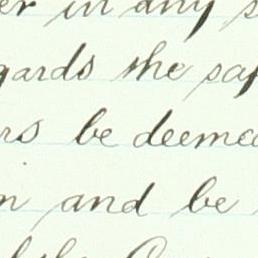 er in any s
gards the saf
rs be deemed
n and be